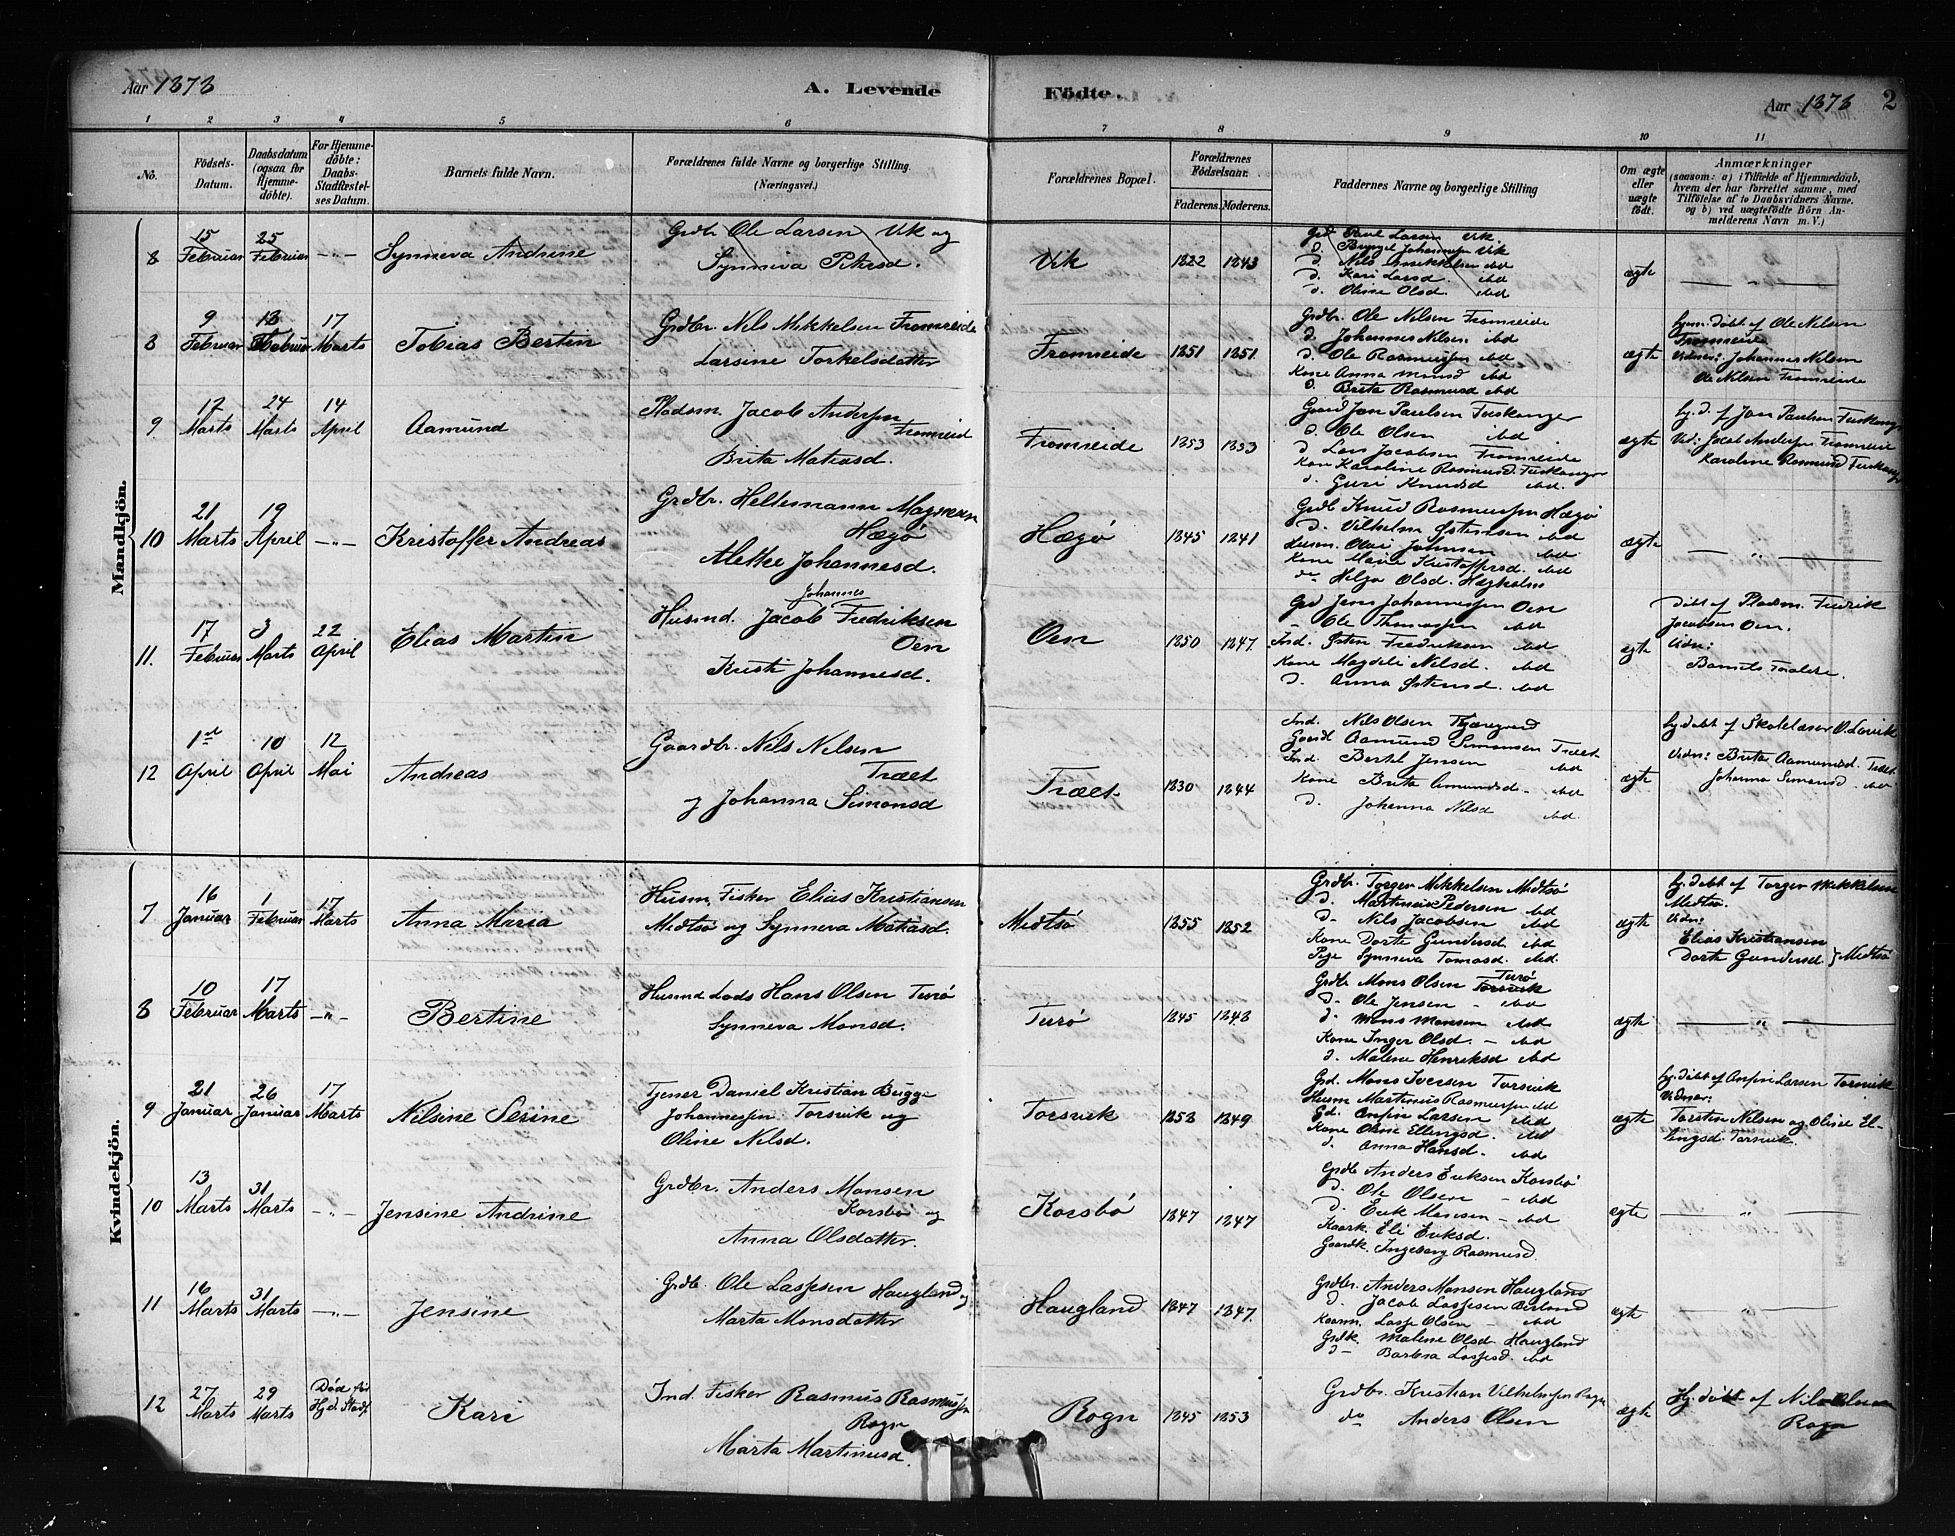 Aar 1878
A. Levende
Födte.
Aar 1878
2
1 2 3 4 5 6 7 8 9 10 11
No.
Födsels-Datum.
Daabsdatum (ogsaa for Hjemme-döbte).
For Hjemme-döbte: Daabs-Stadfæstel-ses Datum.
Barnets fulde Navn.
Forældrenes fulde Navne og borgerlige Stilling. (Næringsvei.)
Forældrenes Bopæl.
Forældrenes Födselsaar.
Faderens. Moderens.
Faddernes Navne og borgerlige Stilling
Om ægte eller uægte födt.
Anmærkninger
(saasom: a) i Tilfælde af Hjemmedaab, hvem der har forrettet samme, med Tilföielse af to Daabsvidners Navne. og b) ved uægtefödte Börn Anmelderens Navn m. V.)
Mandkjön.
8 15 Februar 25 Februar -"- Synneva Andrine
Grdbr. Ole Larsen Vik og
Synneva Petersd.
Vik 1822 1843
Grd Paul Larsen Vik
D. Johannesen Vik
D. Nils Ibd
D. Kari Larsd. ibd
D. Oline Olsd. ibd
ægte
8 9 Februar 13 Februar 17 Marts Tobias Bertin
Grdbr. Nils Mikkelsen Fromreide
Larsine Torkelsdatter
Fromreide 1851 1851.
Grdbr. Ole Nilsen Fromreide
D. Johannes Nilsen ibd
D. Ole Rasmussen ibd
Kone Anna Monsd ibd
D. Brita Rasmusd ibd
ægte
hjm. döbt af Ole Nilsen
Fromreide
Vidner: Johannes Nilsen
Ole Nilsen Fromreide
9 12 Marts 24 Marts 14 April Aamund
Pladsm. Jacob Andersen
Fromreid
Brita Matiasd.
Fromreide 1853 1853
Gaard Jon Paulsen Tuskanger
D. Ole Olsen ibd
D. Lars Jacobsen Fromreide
Kone Karoline Rasmusd. Tuskanger
D. Guri Knudsd ibd.
ægte
hj. d. af Jon Paulsen Tuskanger
Vid: Jacob Andersen Fromreide
Karoline Rasmusd Tuskanger
10 21 Marts 19 April -"- Kristoffer Andreas
Grdbr. Heltemann Magnesen
Hægø
Alekke Johannesd.
Hægø 1845 1841
Grdb Knud Rasmussen Hægø
D. Vilhelm Østensen ibd
Husm. Olai Johnsen ibd
Kone Marie Kristoffersd. ibd
do Helga Olsd. Hægholm
ægte
11. 17 Februar 3 Marts 22 April Elias Martin
Johannes
Husmd. Jacob Fredriksen
Oen
Kristi Johannesd.
Oen 1850 1847.
Grd Jens Johannessen Oen
" Ole Thomassen ibd
Ind. Østen Fredriksen ibd
Kone Magdeli Nilsd. ibd
D. Anna Østensd. ibd
ægte
Döbt af Pladsm. Fredrik
Jacobsen Oen.
Vidn:
Barnets Forældre.
12 1st April 10 April 12 Mai Andreas
Gaardbr. Nils Nilsen
Træet
og Johanna Simonsd
Træet. 1830 1844
Ind. Nils Olsen
Gaard Aamund Simonsen Træet
Ind Bertel Jensen ibd
Kone Brita Amundsd. ibd
D. Johanna Nilsd ibd.
ægte
hj. döbt af Skolelærer O. Larvik
Vidn: Brita Aamundsd. Træet
Johanna Simonsd. ibd
Kvindekjön.
7 16 Januar 1 Februar 17 Marts Anna Maria
Husm. Fisker Elias Kristiansen
Medtsø og Synneva Matiasd.
Medtsø 1855 1852
Grdbr. Torger Mikkelsen Medtsø
D. Martinus Pedersen ibd
D. Nils Jacobsen ibd
Kone Dorte Gundersd. ibd
Pige Synneva Tomasd. ibd.
ægte
hj. döbt af Torger Mikkelsen
Medtsø.
Vidn:
Elias Kristiansen
Dorte Gundersd } Medtsø
8 10 Februar 17 Marts -"- Bertine
Husmd Lods Hans Olsen Turø
Synneva Monsd.
Turø 1845 1848
Turø
Grdbr Mons Olsen Torsvik
D. Ole Jensen - ibd
D. Mons Monsen ibd
Kone Inger Olsd. - ibd
D. Malene Henriksd ibd
ægte
9 21 Januar 26 Januar 17 Marts Nilsine Serine
Tjener Daniel Kristian Bugge
Johannessen Torsvik og
Oline Nilsd.
Torsvik 1853 1849
Grd. Mons Iversen Torsvik
Husm Martinus Rasmussen ibd
Gd. Anfin Larsen ibd
Kone Oline Ellingsd. ibd
D. Anna Hansd. ibd
ægte
hj. döbt af Anfin Larsen Torsvik
Vidner:
Torstin Nilsen og Oline El-
lingsd Torsvik.
10 13 Marts 31 Marts -"- Jensine Andrine
Grdbr. Anders Monsen
Korsbø og
Anna Olsdatter.
Korsbø 1847 1847
Grdb Anders Eriksen Korsbø
D. Ole Olsen - ibd
D. Erik Monsen - ibd
Kaark. Eli Eriksd.
Gaardk. Ingeborg Rasmusd
ægte
11 16 Marts 31 Marts -"- Jensine
Grdb. Ole Lassesen Haugland og
Marta Monsdatter
Haugland 1847 1847.
Grdbr. Anders Monsen Haugland
D. Jacob Lassesen Berland
Kaarm. Lasse Olsen - ibd
Grdk. Malene Olsd Haugland
D- Barbra Lassesd. ibd
ægte
12 27 Marts 29 Marts Død før Hjd Stadf. Kari
Ind. Fisker Rasmus Rasmussen
Rogn
Marta Martinusd.
Rogn 1845 1853
Grdbr. Kristian Vilhelmsen Rogn
do Anders Olsen
ægte
Hj. döbt af Nils Olsen
Rogn